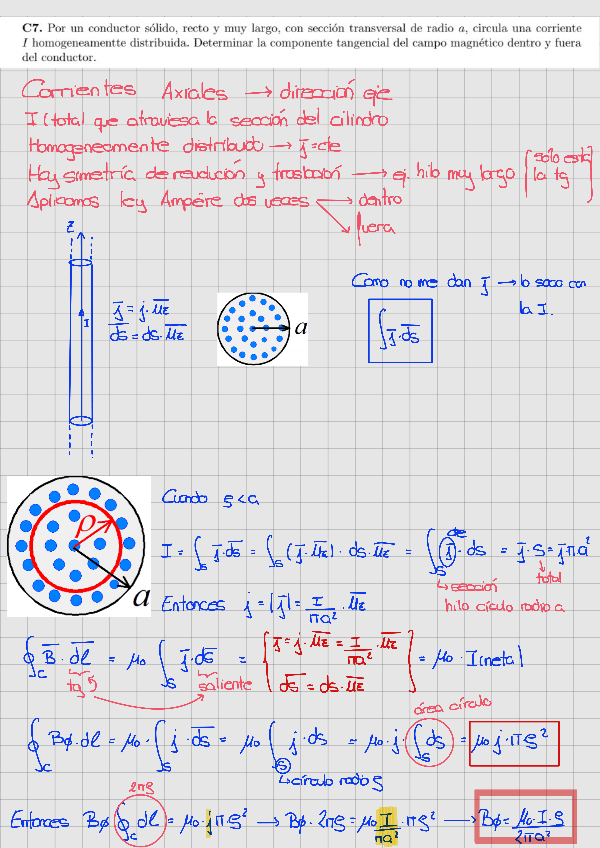 C7. Por un conductor sólido, recto y muy largo, con sección transversal de radio a, circula una corriente
I homogeneamentte distribuida. Determinar la componente tangencial del campo magnético dentro y fuera
del conductor.
Corrientes Axiales → dirección eje
I (total que atraviesa la sección del cilindro
Homogeneamente distribuido → j̅ = cte
Hay simetría de revolución y traslación → ej. hilo muy largo [sólo está
la tg]
Aplicamos ley Ampère dos veces → dentro
fuera
Z
I
j̅ = j·u̅z
d̅s̅ = ds·u̅z
a
Como no me dan j̅ → lo saco con
la I.
∫ j̅·d̅s̅
ρ
a
Cuando ρ<a
I = ∫s j̅·d̅s̅ = ∫s (j·u̅z)·ds·u̅z = ∫s j·ds = j·S = j·πa²
cte
↳ sección
total
hilo círculo radio a
Entonces j = |j̅| = I/πa² · u̅z
∮c B̅·d̅l̅ = μ₀ ∫s j̅·d̅s̅ = { j̅ = j·u̅z = I/πa² · u̅z
d̅s̅ = ds·u̅z } = μ₀·I(neta)
tg ↺
saliente
área círculo
∮c Bϕ·dl = μ₀·∫s j·d̅s̅ = μ₀ ∫s j·ds = μ₀·j·∫s ds = μ₀·j·πρ²
↳ círculo radio ρ
2πρ
Entonces Bϕ ∮c dl = μ₀·jπ·ρ² → Bϕ·2πρ = μ₀ I/πa² · πρ² → Bϕ = μ₀·I·ρ/2πa²